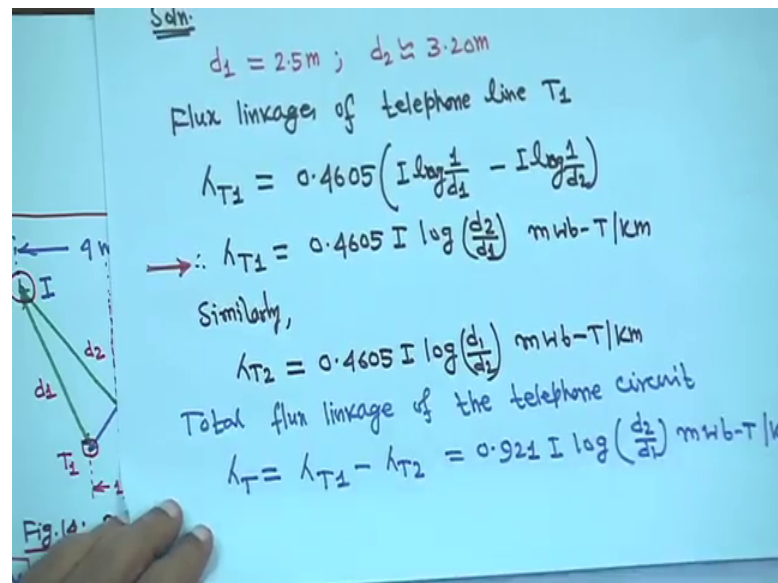 Soln.
d1 = 2.5m ; d2 ≃ 3.20m
Flux linkages of telephone line T1
λT1 = 0.4605 (I log 1/d1 - I log 1/d2)
∴ λT1 = 0.4605 I log (d2/d1) mwb-T/KM
Similarly,
λT2 = 0.4605 I log (d1/d2) mwb-T/KM
Total flux linkage of the telephone circuit
λT = λT1 - λT2 = 0.921 I log (d2/d1) mwb-T/K
I
d2
d1
T1
1